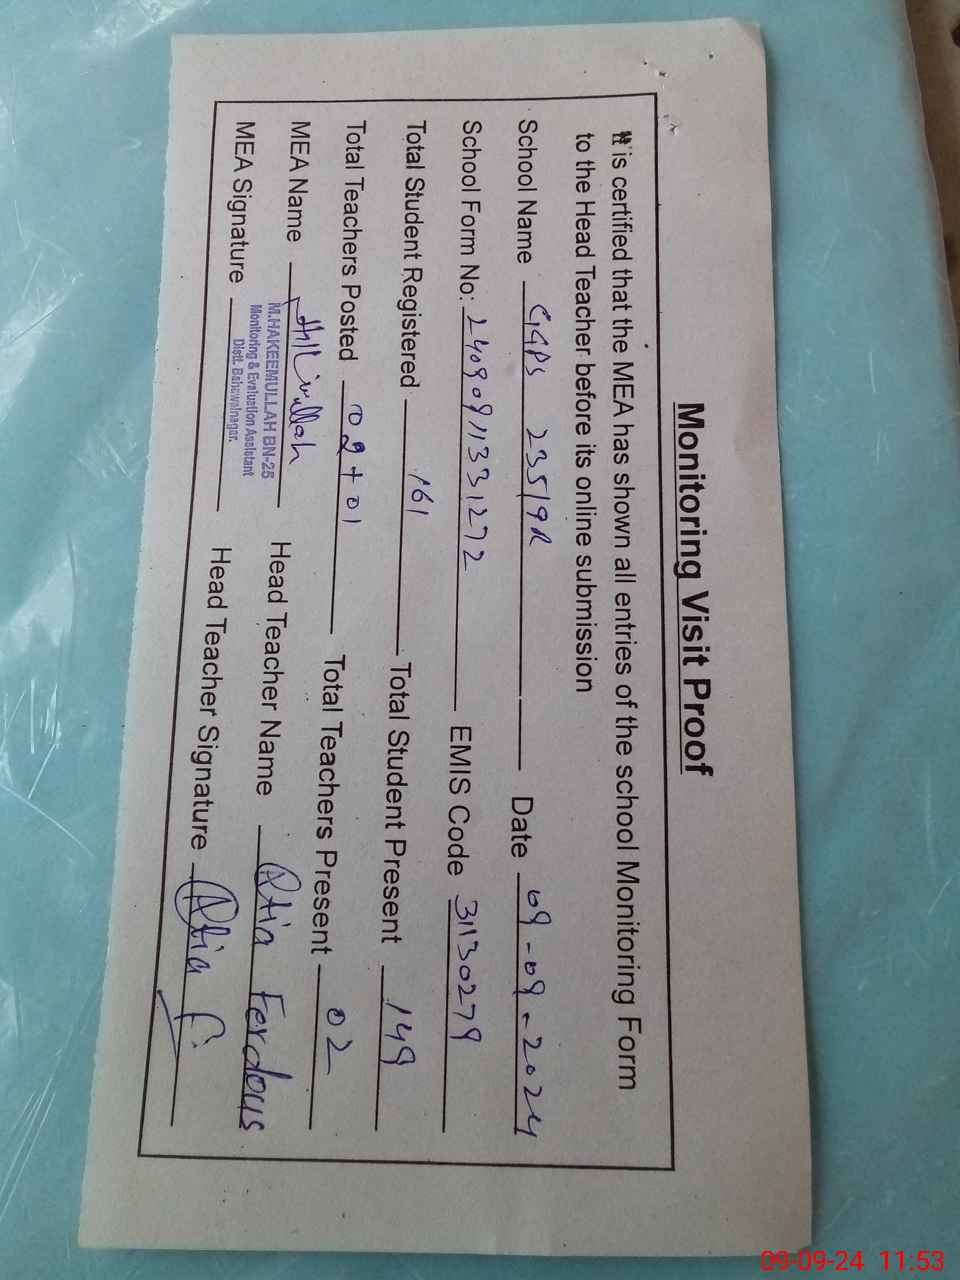 Monitoring Visit Proof
It is certified that the MEA has shown all entries of the school Monitoring Form
to the Head Teacher before its online submission
School Name GGPS 235/9R Date 09-09-2024
School Form No: 24090911331272 EMIS Code 31130279
Total Student Registered 161 Total Student Present 149
Total Teachers Posted 02+01 Total Teachers Present 02
MEA Name Head Teacher Name Atia Ferdous
M.HAKEEMULLAH BN-25
Monitoring & Evaluation Assistant
Distt. Bahawalnagar.
MEA Signature Head Teacher Signature Atia F.
09-09-24 11:53